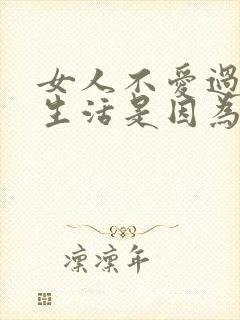 女人不愛過
生活是因為
凜凜年